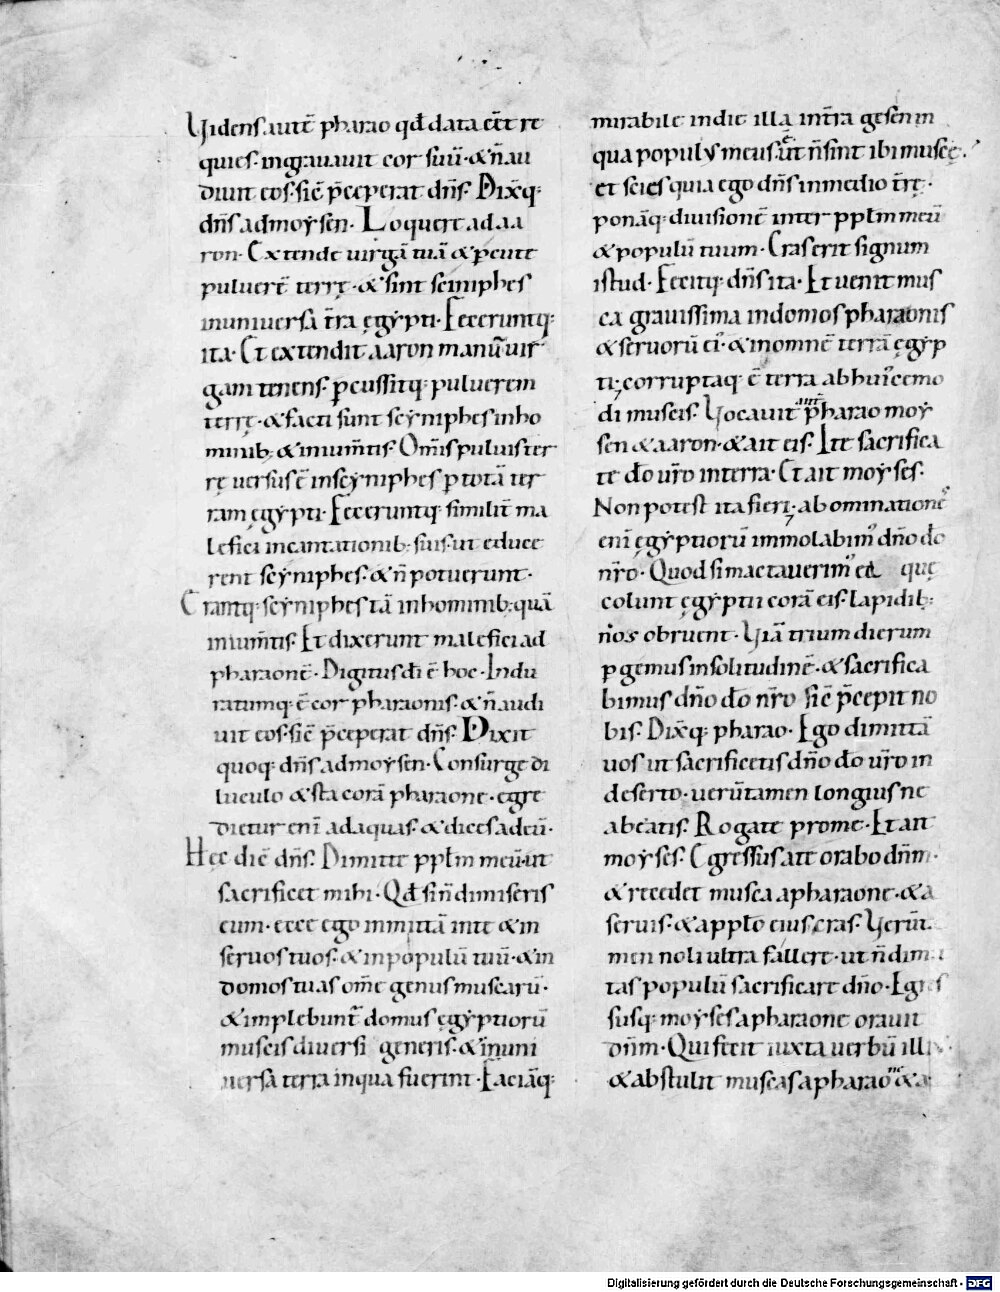 Uidens aut̄ pharao qđ data eēt re
quies. ingrauauit cor suū. & n̄ au
diuit eos. sic̄ p̄ceperat dn̄s. Dix̄q:
dn̄s ad moẏsen. Loquere ad aa
ron. Extende uirgā tuā & pcute
puluerē terrę. & sint sciniphes
in uniuersa t̄ra ęgẏpti. Feceruntq:
ita. Et extendit aaron manū uir
gam tenens. pcussitq: puluerem
terrę. & facti sunt scẏniphes in ho
minib; & in ium̄tis. Om̄is puluis ter
rę uersus ē in scẏniphes p totā ter
ram ęgẏpti. Feceruntq: similit̄ ma
lefici incantationib; suis. ut educe
rent scẏniphes. & n̄ potuerunt.
Erantq: scẏniphes tā in hominib; quā
in ium̄tis. Et dixerunt malefici ad
pharaonē. Digitus dī ē hoc. Indu
ratumq: ē cor pharaonis. & n̄ audi
uit eos. sic̄ p̄ceperat dn̄s. Dixit
quoq: dn̄s ad moẏsen. Consurge di
luculo & sta corā pharaone. egre
dietur enī ad aquas. & dices ad eū.
Hęc dic̄ dn̄s. Dimitte pplm̄ meū. ut
sacrificet mihi. Qđ si n̄ dimiseris
eum. ecce ego inmittā in te & in
seruos tuos. & in populū tuū. & in
domos tuas om̄e genus muscarū.
& implebunt̄ domus ęgẏptiorū
muscis diuersi generis. & in uni
uersa terra in qua fuerint. Faciāq:
mirabile in die illa int̄ra gesen in
qua populus meus ē ut n̄ sint ibi muscę.
et scies quia ego dn̄s in medio t̄rę.
ponāq: diuisionē inter pplm̄ meū
& populū tuum. Cras erit signum
istud. Fecitq: dn̄s ita. Et uenit mus
ca grauissima in domos pharaonis
& seruorū ei' & in omnē terrā ęgẏp
ti; corruptaq: ē terra ab hui'cemo
di muscis. Uocauit pharao moẏ
sen & aaron. & ait eis. Ite sacrifica
te do ur̄o in terra. Et ait moẏses.
Non potest ita fieri; abominationē
enī ęgẏptiorū immolabim' dn̄o do
nr̄o. Quod si mactauerim' ea quę
colunt ęgẏptii corā eis. lapidib;
n̄os obruent. Uiā trium dierum
pgemus in solitudinē. & sacrifica
bimus dn̄o do nr̄o sic̄ p̄cepit no
bis. Dix̄q: pharao. Ego dimittā
uos ut sacrificetis dn̄o do ur̄o in
deserto. uerūtamen longius ne
abeatis. Rogate pro me. Et ait
moẏses. Egressus a te orabo dn̄m.
& recedet musca a pharaone. & a
seruis. & a pplo eius cras. Uerūt
men noli ultra fallere. ut n̄ dimi
tas populū sacrificare dn̄o. Egres
susq: moẏses a pharaone orauit
dn̄m. Qui fecit iuxta uerbū illi'
& abstulit muscas a pharaone & a